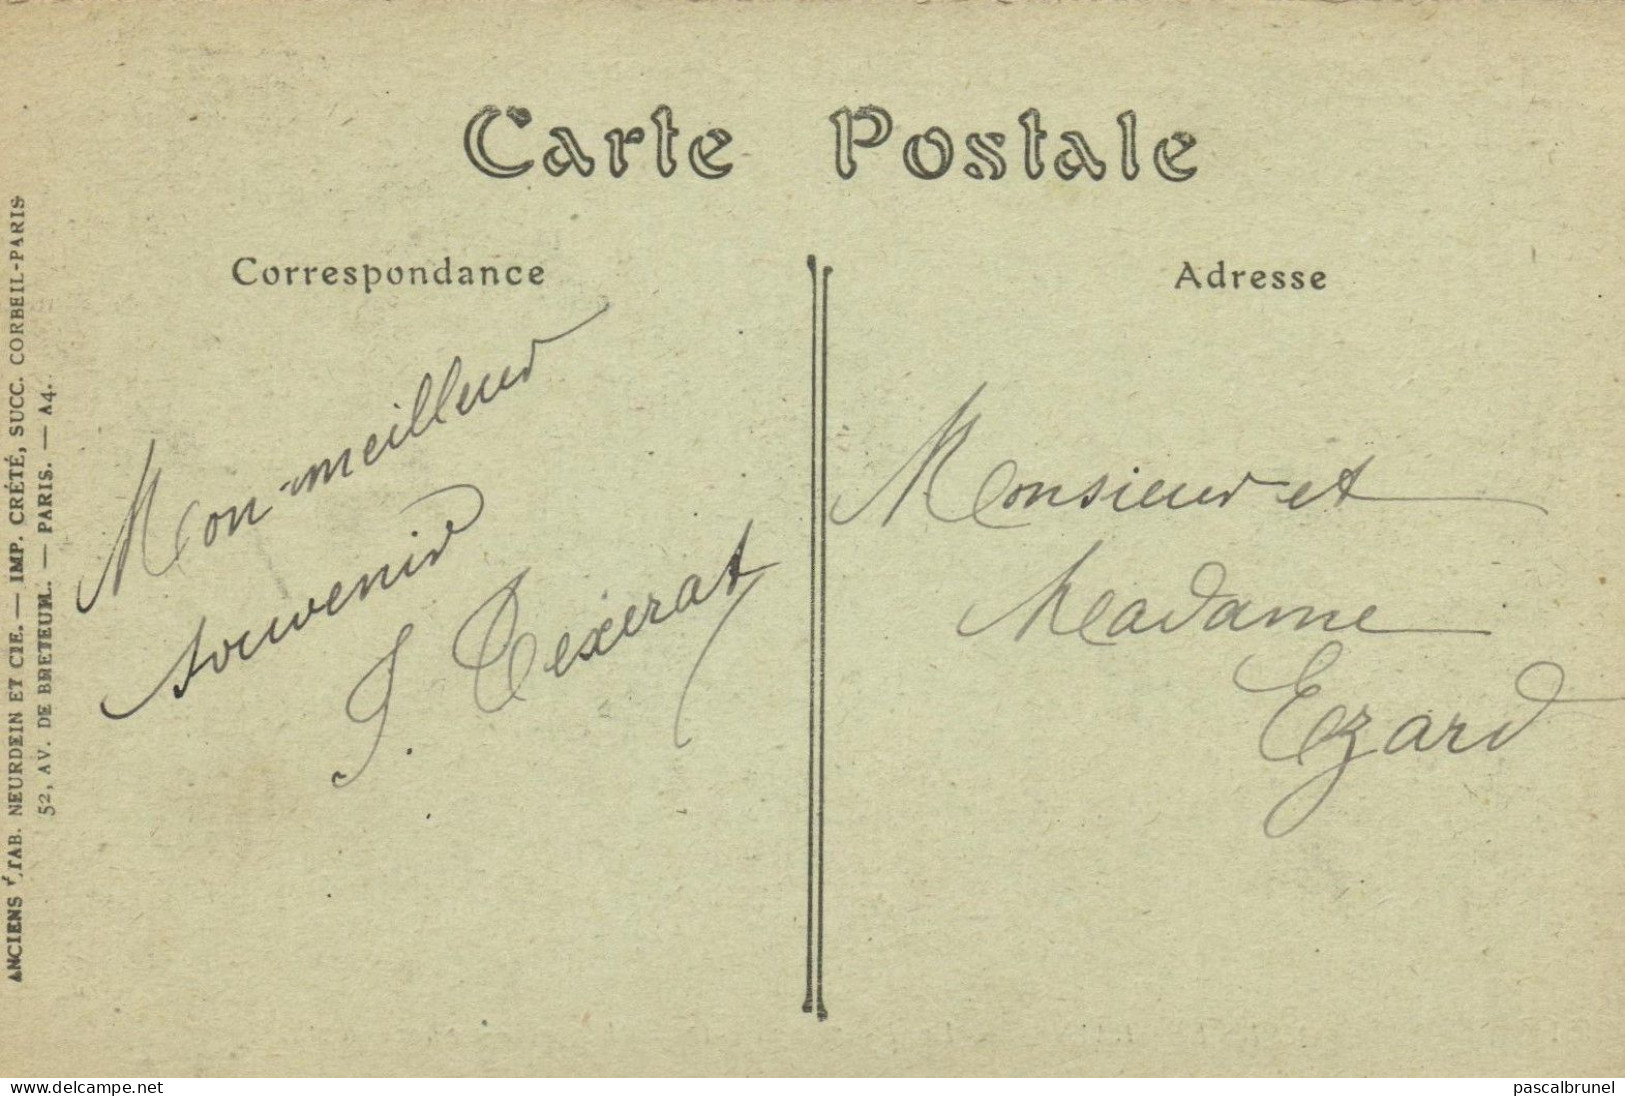 Carte Postale
Correspondance
Mon meilleur
souvenir
J. Texerat
Adresse
Monsieur et
Madame
Ezard
ANCIENS ÉTAB. NEURDEIN ET CIE. — IMP. CRÉTÉ, SUCC. CORBEIL-PARIS
52, AV. DE BRETEUIL. — PARIS. — A4.
www.delcampe.net
pascalbrunel